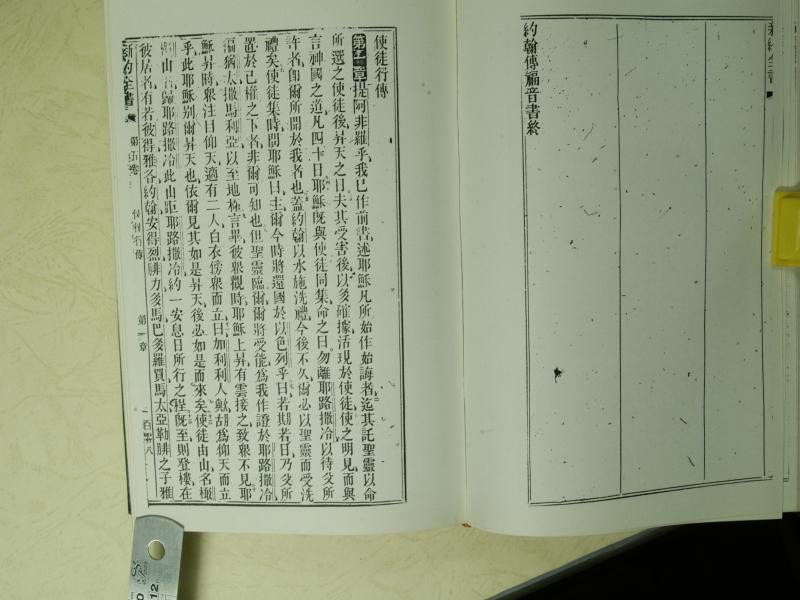 約翰傳福音書終
使徒行傳
第一章提阿非羅乎我已作前書述耶穌凡所始作始誨者迄其託聖靈以命
所選之使徒後昇天之日夫其受害後以多確據活現於使徒使之明見而與
言神國之道凡四十日耶穌旣與使徒同集命之曰勿離耶路撒冷以待父所
許者卽爾所聞於我者也蓋約翰以水施洗禮今後不久爾必以聖靈而受洗
禮矣使徒集時問耶穌曰主爾今時將還國於以色列乎曰若期若日乃父所
置於己權之下者非爾可知也但聖靈臨爾爾將受能爲我作證於耶路撒冷
猶太撒馬利亞以至地極言畢彼衆觀時耶穌上昇有雲接之致衆不見耶
穌昇時衆注目仰天適有二人白衣傍衆而立曰加利利人歟胡爲仰天而立
乎此耶穌別爾昇天也依爾見其如是昇天後必如是而來矣使徒由山名橄
山歸耶路撒冷此山距耶路撒冷約一安息日所行之程旣至則登樓在
彼居者有若彼得雅各約翰安得烈腓力多馬巴多羅買馬太亞勒腓之子雅
新約全書 第五卷 使徒行傳 第一章 一百零八